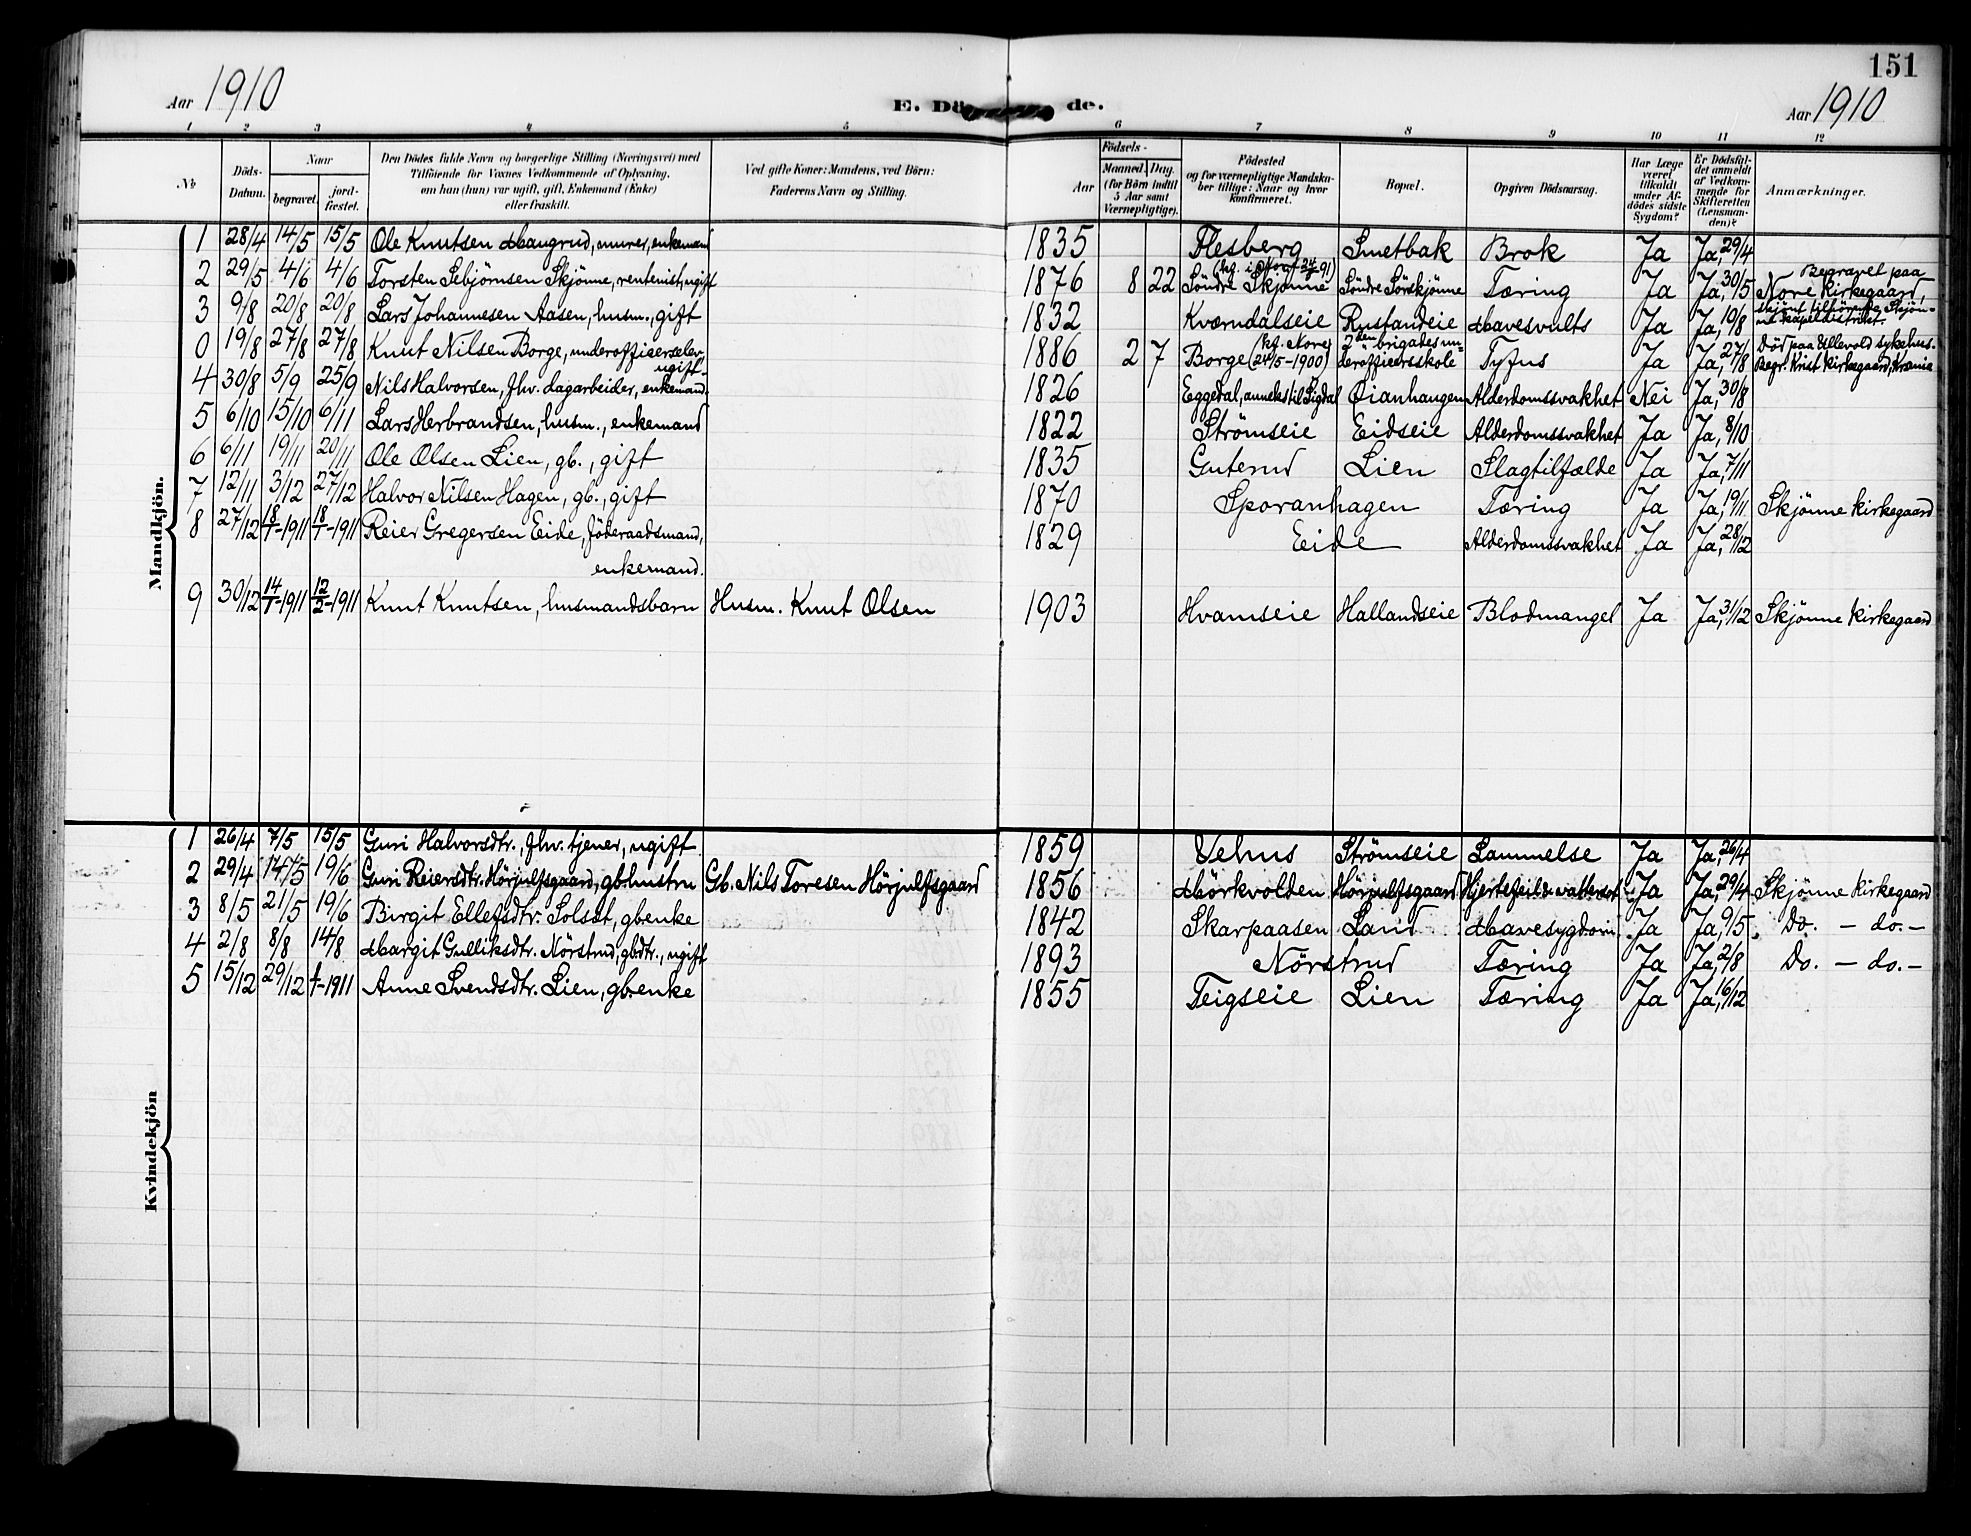 151
Aar 1910
E. Dö de.
Aar 1910
1 2 3 4 5 6 7 8 9 10 11 12
No
Döds-Datum.
Naar begravet. jordfæstet.
Den Dödes fulde Navn og borgerlige Stilling (Næringsvei) med Tilföiende for Voxnes Vedkommende af Oplysning, om han (hun) var ugift, gift, Enkemand (Enke) eller fraskilt.
Ved gifte Koner: Mandens, ved Börn: Faderens Navn og Stilling.
Födsels-
Aar
Maaned. Dag.
(for Börn indtil 5 Aar samt Værnepligtige).
Födested og for værnepligtige Mandskaber tillige: Naar og hvor konfirmeret.
Bopæl.
Opgiven Dödsaarsag.
Har Læge været tilkaldt under Afdödes sidste Sygdom?
Er Dödsfaldet anmeldt af Vedkommende for Skifteretten (Lensmanden)?
Anmærkninger.
Mandkjön.
1 28/4 14/5 15/5 Ole Knutsen Haugrud, murer, enkemand 1835 Flesberg Smetbak Brok Ja Ja, 29/4
2 29/5 4/6 4/6 Torsten Sebjörnsen Skjönne, rentenist, ugift 1876 8 22 Söndre Skjönne Söndre Sörskjönne Tæring Ja Ja, 30/5 Begravet paa Nore kirkegaard,
3 9/8 20/8 20/8 Lars Johannesen Aasen, husm., gift 1832 Kværndalseie Rustandeie Mavesvults Ja Ja, 19/8
0 19/8 27/8 27/8 Knut Nilsen Borge, underofficerselev, ugift. 1886 2 7 Borge (kf. Nore 24/5-1900) 2den brigades underofficersskole Tyfus Ja Ja, 27/8 Död paa Ullevold sykehus. Begr. Krist kirkegaard, Kr.ania
4 30/8 5/9 25/9 Nils Halvorsen, fhv. dagarbeider, enkemand. 1826 Eggedal, anneks til Sigdal Öianhaugen Alderdomssvakhet Nei Ja, 30/8
5 6/10 15/10 6/11 Lars Herbrandsen, husm., enkemand 1822 Strömseie Eidseie Alderdomssvakhet Ja Ja, 8/10
6 6/11 19/11 20/11 Ole Olsen Lien, gb., gift 1835 Guterud Lien Slagtilfælde Ja Ja, 7/11
7 12/11 3/12 27/12 Halvor Nilsen Hagen, gb., gift 1870 Sporanhagen Tæring Ja Ja, 19/11 Skjönne kirkegaard
8 27/12 18/1-1911 18/1-1911 Reier Gregersen Eide, föderaadsmand, 1829 Eide Alderdomssvakhet Ja Ja, 28/12
enkemand.
9 30/12 14/1-1911 12/2-1911 Knut Knutsen, husmandsbarn Husm. Knut Olsen 1903 Hvamseie Hallandseie Blodmangel Ja Ja, 31/12 Skjönne kirkegaard
Kvindekjön
1 26/4 7/5 15/5 Guri Halvorsdtr., fhv. tjener, ugift 1859 Vehus Strömseie Lammelse Ja Ja, 26/4
2 29/4 14/5 19/6 Guri Reiersdtr. Hörjulfsgaard, gb.hustru Gb. Nils Toresen Hörjulfsgaard 1856 Mörkvolden Hörjulfsgaard Hjertefeil & vattersot Ja Ja, 29/4 Skjönne kirkegaard
3 8/5 21/5 19/6 Birgit Ellefsdtr. Solsat, gb.enke 1842 Skarpaasen Land Mavesygdom Ja Ja, 9/5 Do. - do. -
4 2/8 8/8 14/8 Margit Gulliksdtr. Nörstrud, gbdtr., ugift 1893 Nörstrud Tæring Ja Ja, 2/8 Do. - do. -
5 15/12 29/12 1/1-1911 Anne Svendsdtr. Lien, gb.enke 1855 Teigseie Lien Tæring Ja Ja, 16/12